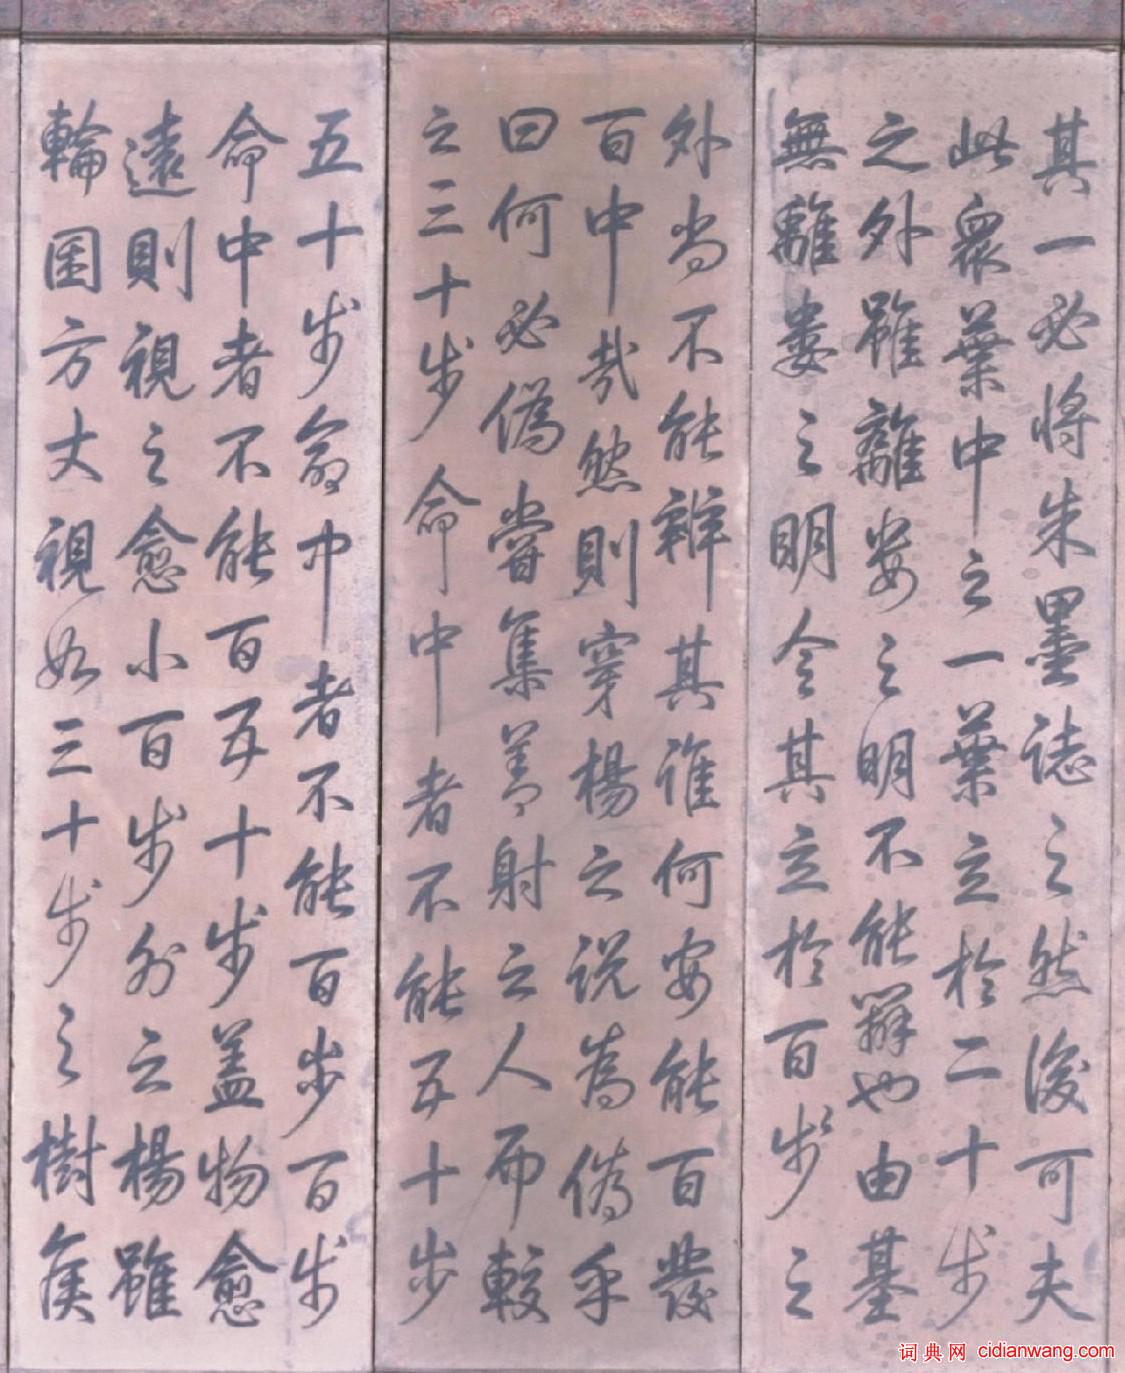 其一必將朱墨誌之然後可夫
此眾葉中之一葉立於二十步
之外雖離婁之明不能辨也由基
無離婁之明令其立於百步之
外尚不能辨其誰何安能百發
百中哉然則穿楊之說為偽乎
曰何必偽嘗集善射之人而較
之三十步命中者不能五十步
五十步命中者不能百步百步
命中者不能百五十步蓋物愈
遠則視之愈小百步外之楊雖
輪囷方丈視如三十步之樹侯
词典网 cidianwang.com